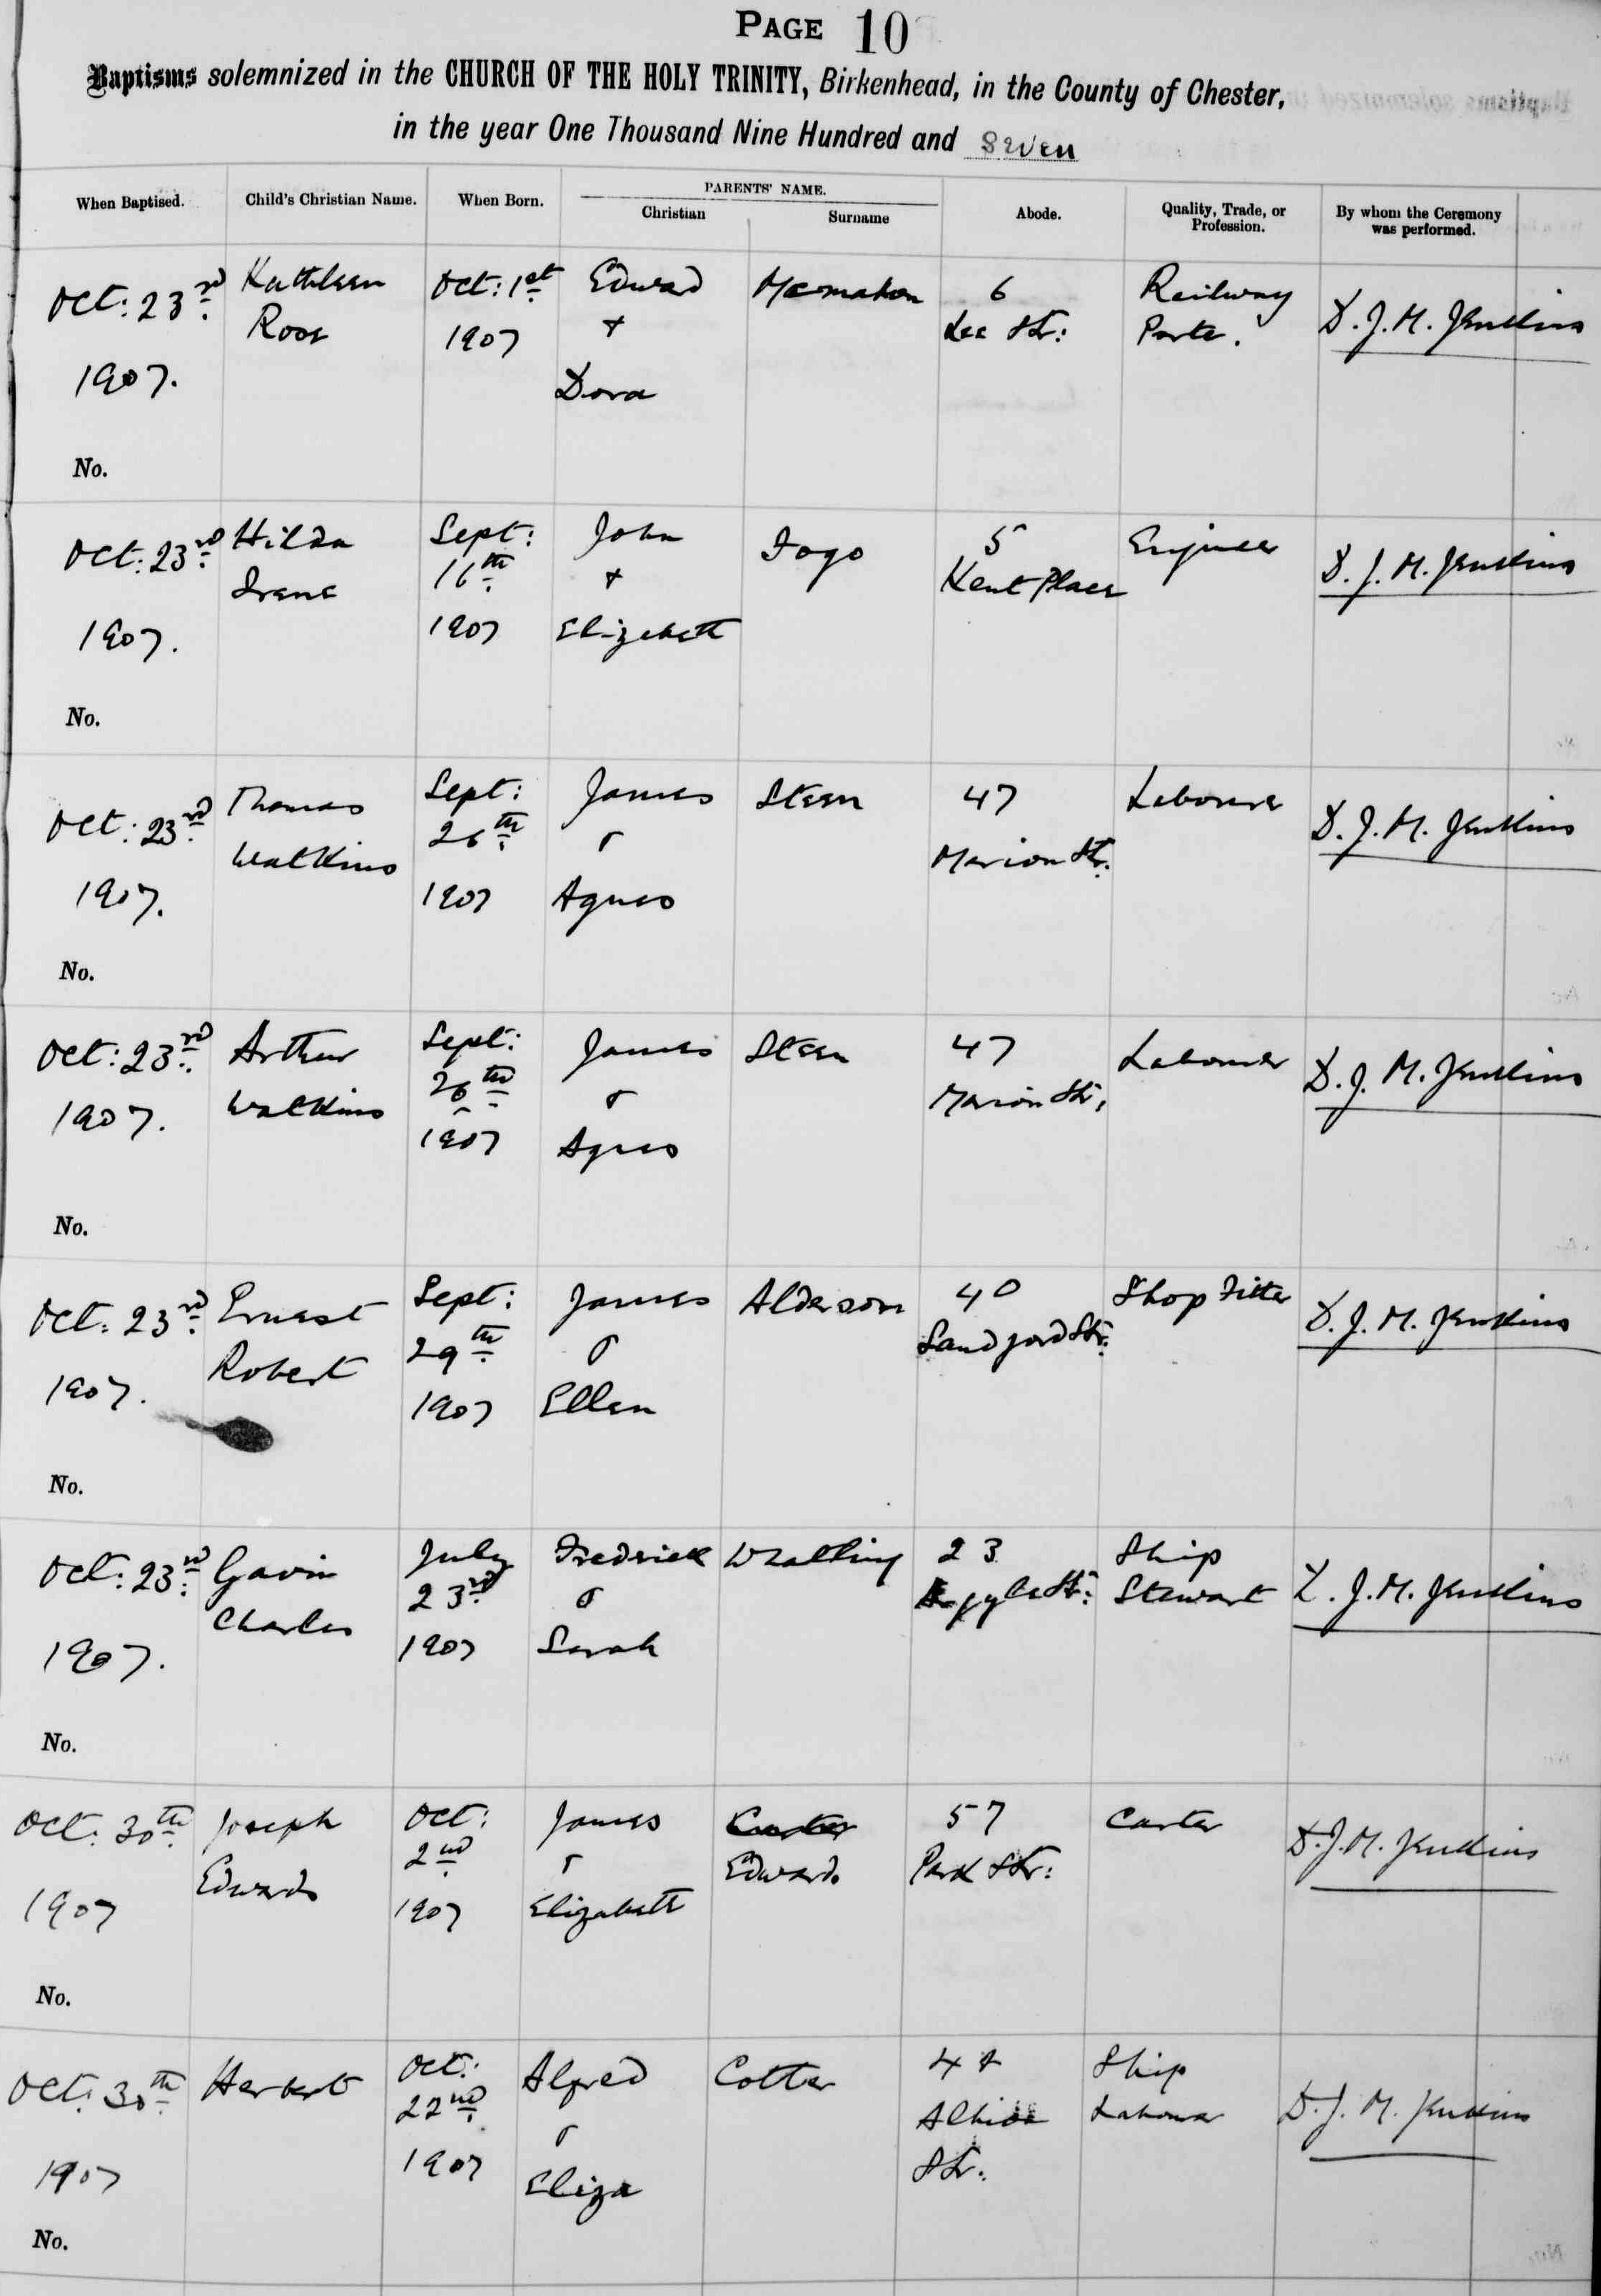 PAGE 10
Baptisms solemnized in the CHURCH OF THE HOLY TRINITY, Birkenhead, in the County of Chester,
in the year One Thousand Nine Hundred and Seven
When Baptised.
Child's Christian Name.
When Born.
PARENTS' NAME.
Christian
Surname
Abode.
Quality, Trade, or
Profession.
By whom the Ceremony
was performed.
Oct: 23rd
1907.
No.
Kathleen
Rose
Oct: 1st
1907
Edward
+
Dora
Mcmahon
6
Lee Str:
Railway
Porter.
D. J. M. Jenkins
Oct: 23rd
1907.
No.
Hilda
Irene
Sept:
16th
1907
John
+
Elizabeth
Iago
5
Kent Place
Engineer
D. J. M. Jenkins
Oct: 23rd
1907.
No.
Thomas
Watkins
Sept:
26th
1907
James
&
Agnes
Steen
47
Marion Str.
Labourer
D. J. M. Jenkins
Oct: 23rd
1907.
No.
Arthur
Watkins
Sept:
26th
1907
James
&
Agnes
Steen
47
Marion Str.
Labourer
D. J. M. Jenkins
Oct: 23rd
1907.
No.
Ernest
Robert
Sept:
29th
1907
James
&
Ellen
Alderson
40
Sandford Str:
Shop Fitter
D. J. M. Jenkins
Oct: 23rd
1907.
No.
Gavin
Charles
July
23rd
1907
Fredrick
&
Sarah
Whalling
23
Argyle Str:
Ship
Stewart
D. J. M. Jenkins
Oct: 30th
1907
No.
Joseph
Edwards
Oct:
2nd
1907
James
&
Elizabeth
Carter
Edwards
57
Park Str:
Carter
D. J. M. Jenkins
Oct: 30th
1907
No.
Herbert
Oct:
22nd
1907
Alfred
&
Eliza
Cotter
Albion
Str:
Ship
Labourer
D. J. M. Jenkins